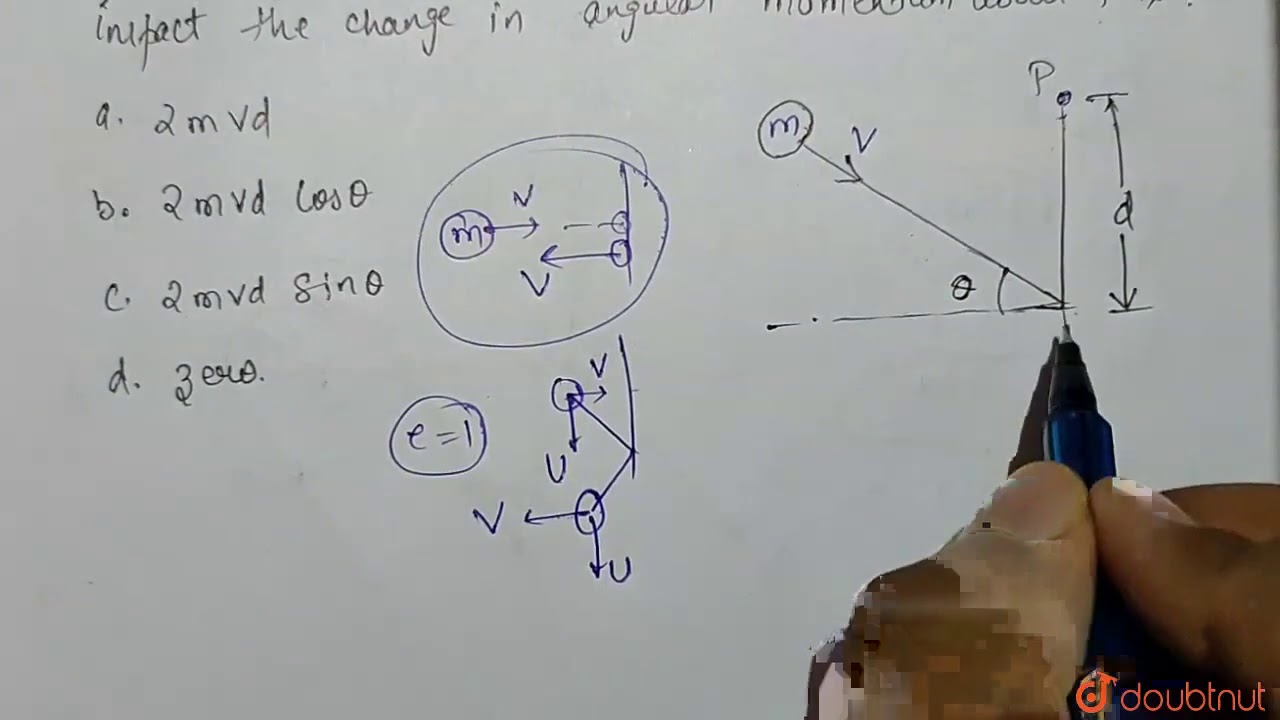 impact the change in angular momentum about
a. 2mvd
b. 2mvd cosθ
c. 2mvd sinθ
d. zero.
m
V
V
e=1
V
U
V
U
P
m
V
d
θ
doubtnut